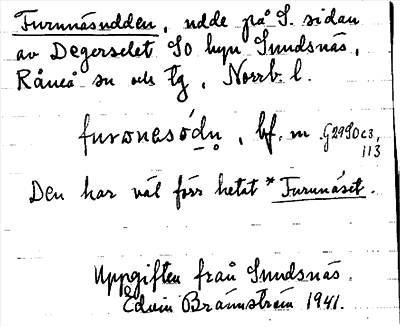 Furunäsudden, udde på S. sidan
av Degerselet SO byn Sundsnäs,
Råneå sn och tg, Norrb. l.
furɷnesódn̥, bf. m G2990c3,
113
Den har väl förr hetat *Furunäset.
Uppgiften från Sundsnäs.
Edvin Brännström 1941.